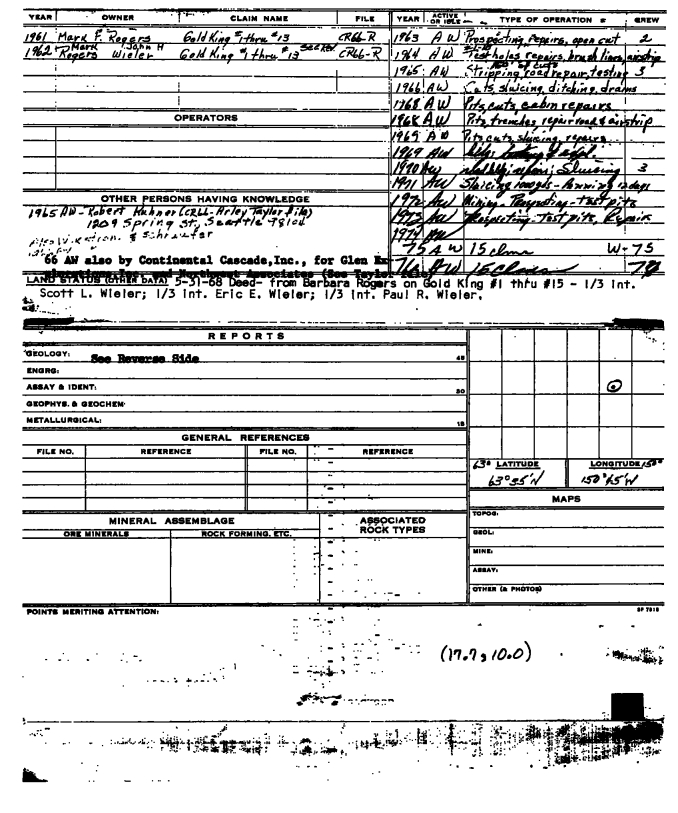 YEAR OWNER CLAIM NAME FILE
1961 Mark F. Rogers Gold King #1 thru #13 CR66-R
1962 Mark Rogers John H Wieler Gold King #1 thru #13 see rev CR66-R
OPERATORS
OTHER PERSONS HAVING KNOWLEDGE
1965 AW - Robert Hahner (CR66-Arley Taylor file)
1209 Spring St, Seattle 98104
YEAR ACTIVE OR IDLE TYPE OF OPERATION & CREW
1963 A W Prospecting, repairs, open cut 2
1964 A W Test holes repairs, brush lines, airstrip
1965 AW Stripping, road repair, testing 3
1966 AW Cuts, sluicing, ditching, drains
1968 A W Pits, cuts, cabin repairs
1968 A W Pits, trenches, repair road & airstrip
1969 A W Pits, cuts, sluicing, repairs
1969 AW
1970 AW Sluicing 3
1971 AW Sluicing - Panning 12 days
1972 AW Mining - Prospecting - test pits
1973 AW Prospecting - Test pits, Repairs
1974 AW
75 A W 15 clms W-75
76 AW 15 Claims
'66 AW also by Continental Cascade, Inc., for Glen Explorations, Inc. and Northwest Associates (See Taylor file)
LAND STATUS (OTHER DATA) 5-31-68 Deed- from Barbara Rogers on Gold King #1 thru #15 - 1/3 int.
Scott L. Wieler; 1/3 int. Eric E. Wieler; 1/3 int. Paul R. Wieler.
REPORTS
GEOLOGY: See Reverse Side
ENGRG:
ASSAY & IDENT:
GEOPHYS. & GEOCHEM:
METALLURGICAL:
GENERAL REFERENCES
FILE NO. REFERENCE FILE NO. REFERENCE
63° LATITUDE LONGITUDE 150°
63°55'N 150°45'W
MAPS
TOPOG:
GEOL:
MINE:
ASSAY:
OTHER (& PHOTOS)
MINERAL ASSEMBLAGE ASSOCIATED ROCK TYPES
ORE MINERALS ROCK FORMING, ETC.
POINTS MERITING ATTENTION:
(17.7, 10.0)